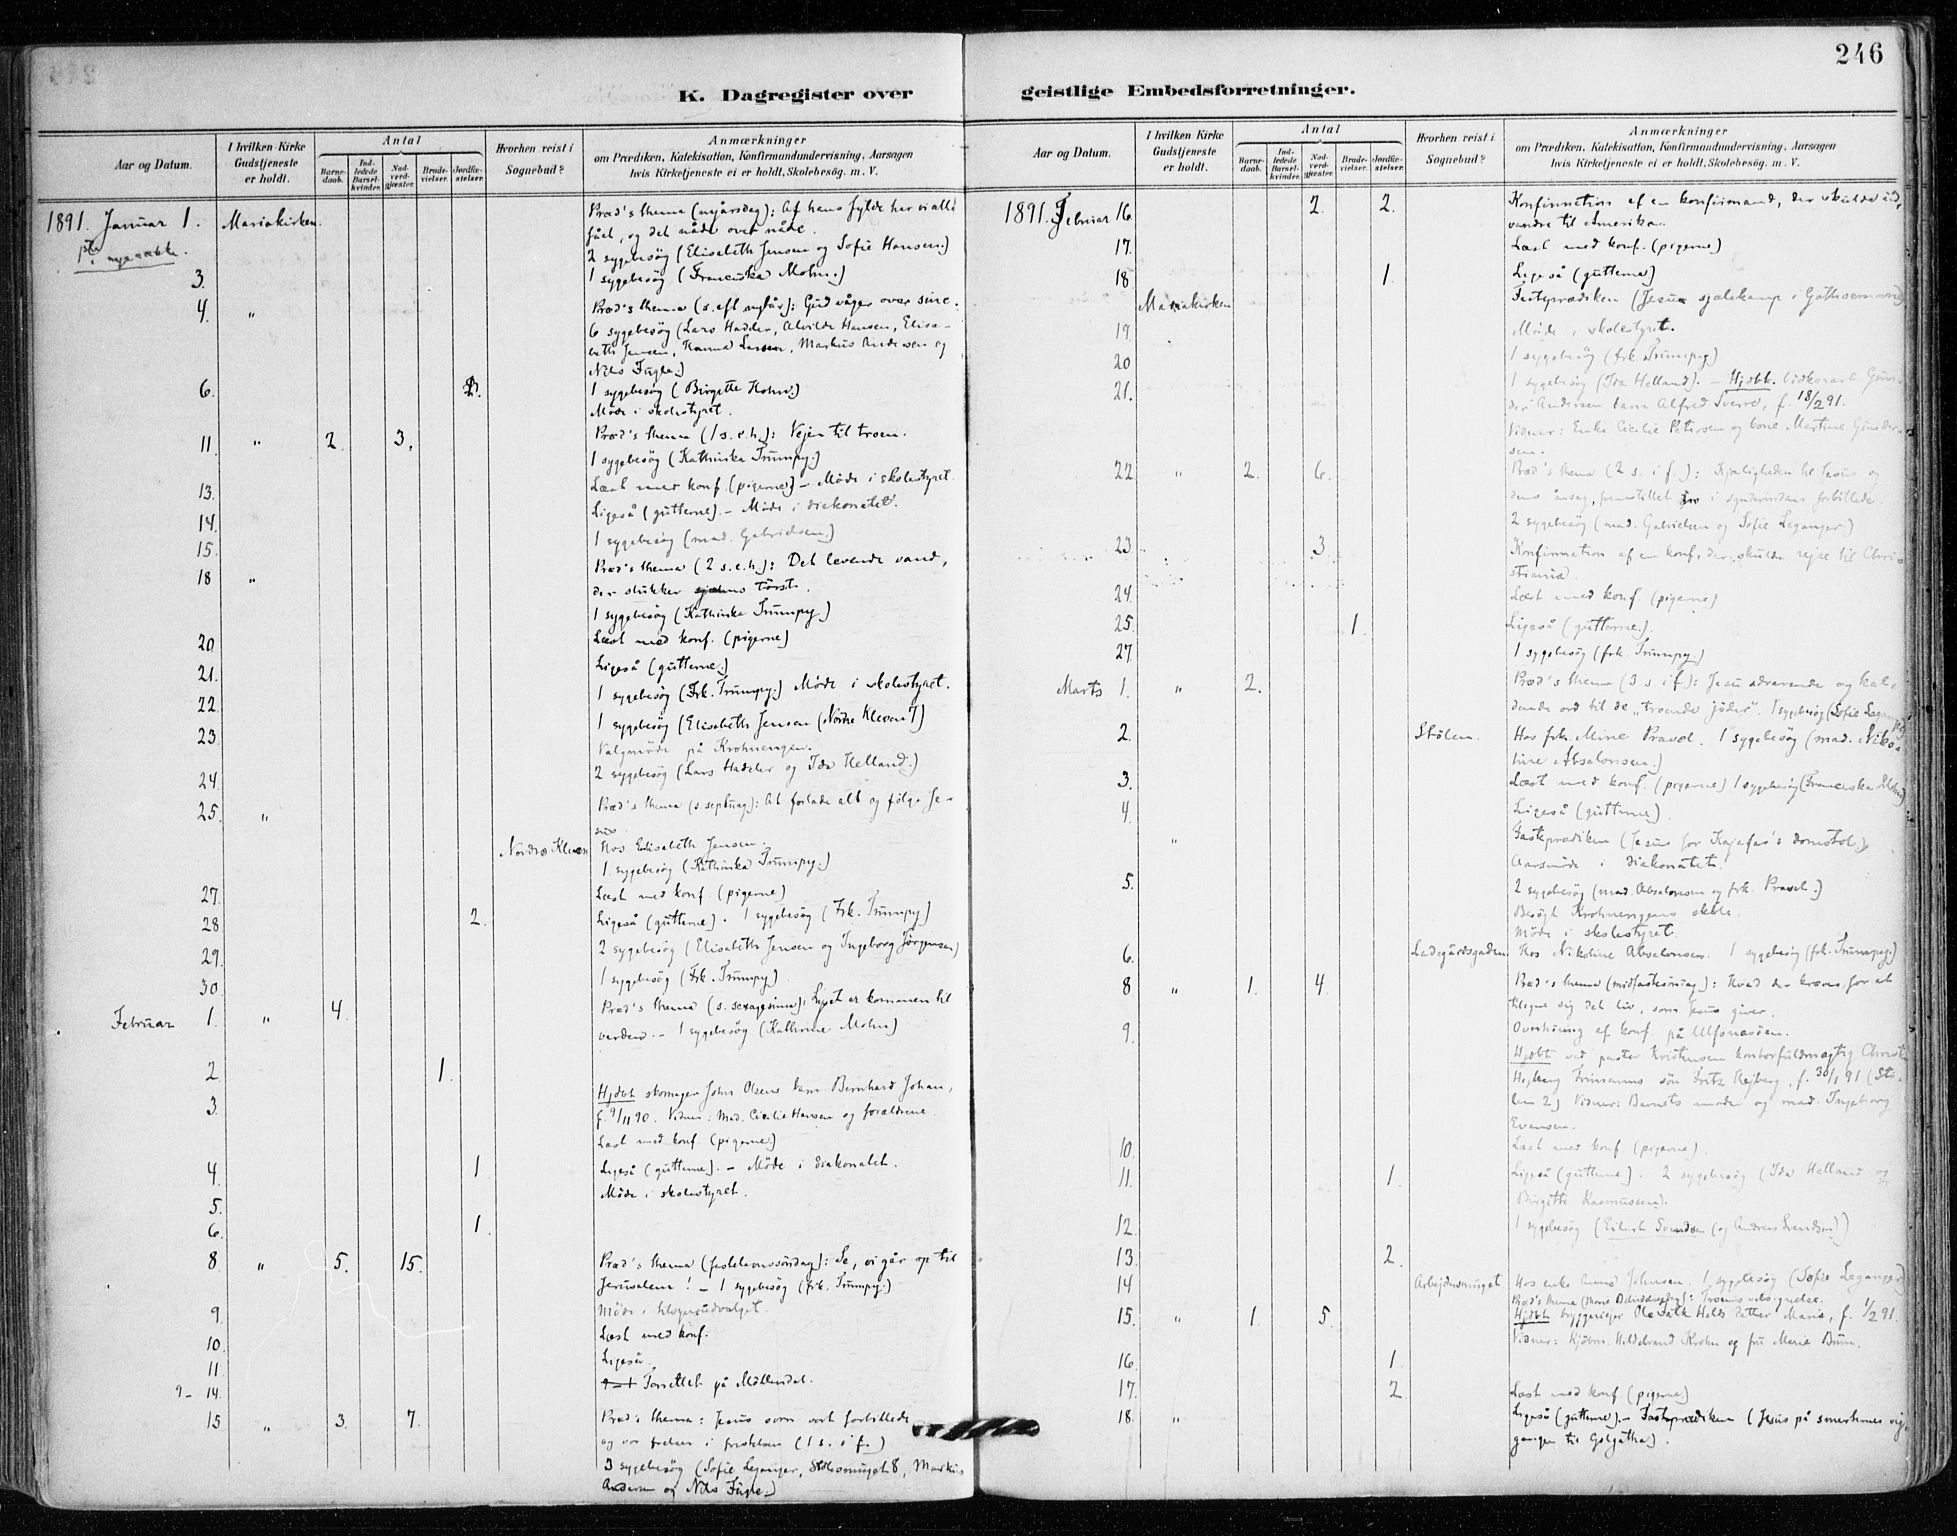 246
K. Dagregister over geistlige Embedsforretninger.
Aar og Datum.
I hvilken Kirke Gudstjeneste er holdt.
Antal
Barnedaab.
Indledede Barselkvinder.
Nadverdgjester.
Brudevielser.
Jordfæstelser.
Hvorhen reist i Sognebud?
Anmærkninger
om Prædiken, Katekisation, Konfirmandundervisning, Aarsagen
hvis Kirketjeneste ei er holdt, Skolebesøg. m. V.
1891. Januar 1. Mariakirken. Præd's thema (nyårsdag): Af hans fylde har vi alle
fået, og det nåde over nåde.
2 sygebesög (Elisabeth Jensen og Sofie Hansen.)
3. 1 sygebesög (Franciska Mohn.)
4. " Præd's thema (s. eft. nytår): Gud våger over sine.
6 sygebesög (Lars Hadler, Alvilde Hansen, Elisa-
beth Jensen, Hanna Larsen, Markus Andersen og
Nils Fugle.)
6. 2. 1 sygebesög (Birgitte Holm.)
Möde i skolestyret.
11 " 2. 3. Præd's thema (1 s. e. h.): Vejen til troen.
1 sygebesög (Kathinka Trumpy.)
13. Læst med konf. (pigerne) – Möde i skolestyret.
14. Ligeså (gutterne). – Möde i diakonatet.
15. 1 sygebesög (mad. Gabrielsen.)
18 " Præd's thema (2 s. e. h.): Det levende vand,
der slukker sjælens törst.
1 sygebesög (Kathinka Trumpy.)
20 Læst med konf. (pigerne)
21. Ligeså (gutterne.)
22 1 sygebesög (Frk. Trumpy.) Möde i skolestyret.
23 1 sygebesög (Elisabeth Jensen (Nordre Kleven 7)
Valgmöde på Krohnengen.
24. 2 sygebesög (Lars Hadeler og Ida Helland.)
25. " Præd's thema (s. septuag.): At forlade alt og fölge Je-
sus.
Nordre Kleven Hos Elisabeth Jensen.
1 sygebesög (Kathinka Trumpy.)
27. Læst med konf. (pigerne)
28 2. Ligeså (gutterne). 1 sygebesög (Frk. Trumpy)
29. 2 sygebesög (Elisabeth Jensen og Ingeborg Jørgensen)
30. 1 sygebesög (Frk. Trumpy)
Februar 1. " 4. Præd's thema (s. sexagesima): Lyset er kommen til
verden. – 1 sygebesög (Kathrine Mohn)
2 1.
3. Hjdbt skomager John Olsens sön Bernhard Johan,
f. 9/11 90. Vidner: Mad. Cecilie Hansen og forældrene.
Læst med konf. (pigerne.)
4. 1 Ligeså (gutterne). – Möde i diakonatet.
5. Möde i skolestyret.
6. 1.
8 " 5. 15. Præd's thema (fastelavnssöndag): Se, vi går op til
Jerusalem! – 1 sygebesög (frk. Trumpy.)
9. Möde i udvalget.
10. Læst med konf.
11 Ligeså.
9 – 14. Forrettet på Möllendal.
15 " 3. 7. Præd's thema: Jesus som vort forbillede
og vor frelser i fristelsen (1 s. i f.)
3 sygebesög (Sofie Leganger, 8, Markus
Andersen og Nils Fugle.)
Aar og Datum.
I hvilken Kirke Gudstjeneste er holdt.
Antal
Barnedaab.
Indledede Barselkvinder.
Nadverdgjester.
Brudevielser.
Jordfæstelser.
Hvorhen reist i Sognebud?
Anmærkninger
om Prædiken, Katekisation, Konfirmandundervisning, Aarsagen
hvis Kirketjeneste ei er holdt, Skolebesøg. m. V.
1891. Februar 16. 2. 2. Konfirmation af en konfirmand, der skulde ud-
vandre til Amerika.
17. Læst med konf. (pigerne)
18 1. Ligeså (gutterne)
Mariakirken Fasteprædiken (Jesu sjælekamp i Gethsemane)
19. Möde i skolestyret.
20 1 sygebesög (frk. Trumpy)
21. 1 sygebesög (Ida Helland). – Hjdbt.
Andersen Alfred Sverre, f. 18/2 91.
Vidner: Enke Cecilie Petersen og kone Martine Gunder-
sen.
22 " 2. 6. Præd's thema (2 s. i f.): Kjærligheden til Jesus og
dens årsag, fremstillet i synderindens forbillede.
2 sygebesög (mad. Gabrielsen og Sofie Leganger)
23. 3 Konfirmation af en konf., der skulde rejse til Chris-
tiania.
24. Læst med konf. (pigerne)
25. 1. Ligeså (gutterne.)
27. 1 sygebesög (frk. Trumpy.)
Marts 1. " 2. Præd's thema (3 s. i f.): Jesu advarende og kal-
dende ord til de „troende jöder". 1 sygebesög (Sofie Leganger)
2. Stölen. Hos frk. Mine Pravel. 1 sygebesög (mad. Niko-
line Absalonsen.)
3. Læst med konf. (pigerne) 1 sygebesög (Franciska Mohn)
4. Ligeså (gutterne).
" Fasteprædiken (Jesus for Kajafas's domstol.)
Aarsmöde i diakonatet.
5. 2 sygebesög (mad. Absalonsen og frk. Pravel.)
Besögt Krohnengens skole.
Möde i skolestyret.
6. Ladegårdsgaden. Hos Nikoline Absalonsen. 1 sygebesög (frk. Trumpy.)
8 " 1. 4. Præd's thema (midfastesöndag): Hvad der kræves for at
tilegne sig det liv, som Jesus giver.
9. Overhöring af konf. på Ulfsnesöen.
Hjdbt ved pastor Kristensen kontorfuldmægtig
sön Fritz Hejberg, f. 30/1 91 (Stö-
len 2) Vidner: Barnets moder og mad. Ingeborg
Evensen.
10. Læst med konf. (pigerne).
11. 1. Ligeså (gutterne). 2 sygebesög (Ida Helland og
Birgitte Rasmussen).
12. 1 sygebesög (Eilert Svendsen (og Andreas Svendsen))
13. 2.
14 Arbejdersmuget Hos enke Anna Johnsen. 1 sygebesög (Sofie Leganger)
Præd's thema (Marie Budskabsdag): Troens velsignelse.
15. " 1. 5. Hjdbt bryggerieier Ole Falk Halds datter Marie, f. 1/2 91.
Vidner: Kjöbm. Hildebrand Krohn og fru Marie Brun.
16. 1.
17. 2 Læst med konf. (pigerne)
18. " Ligeså (gutterne). – Fasteprædiken (Jesus på smerternes vej,
gangen til Golgatha).